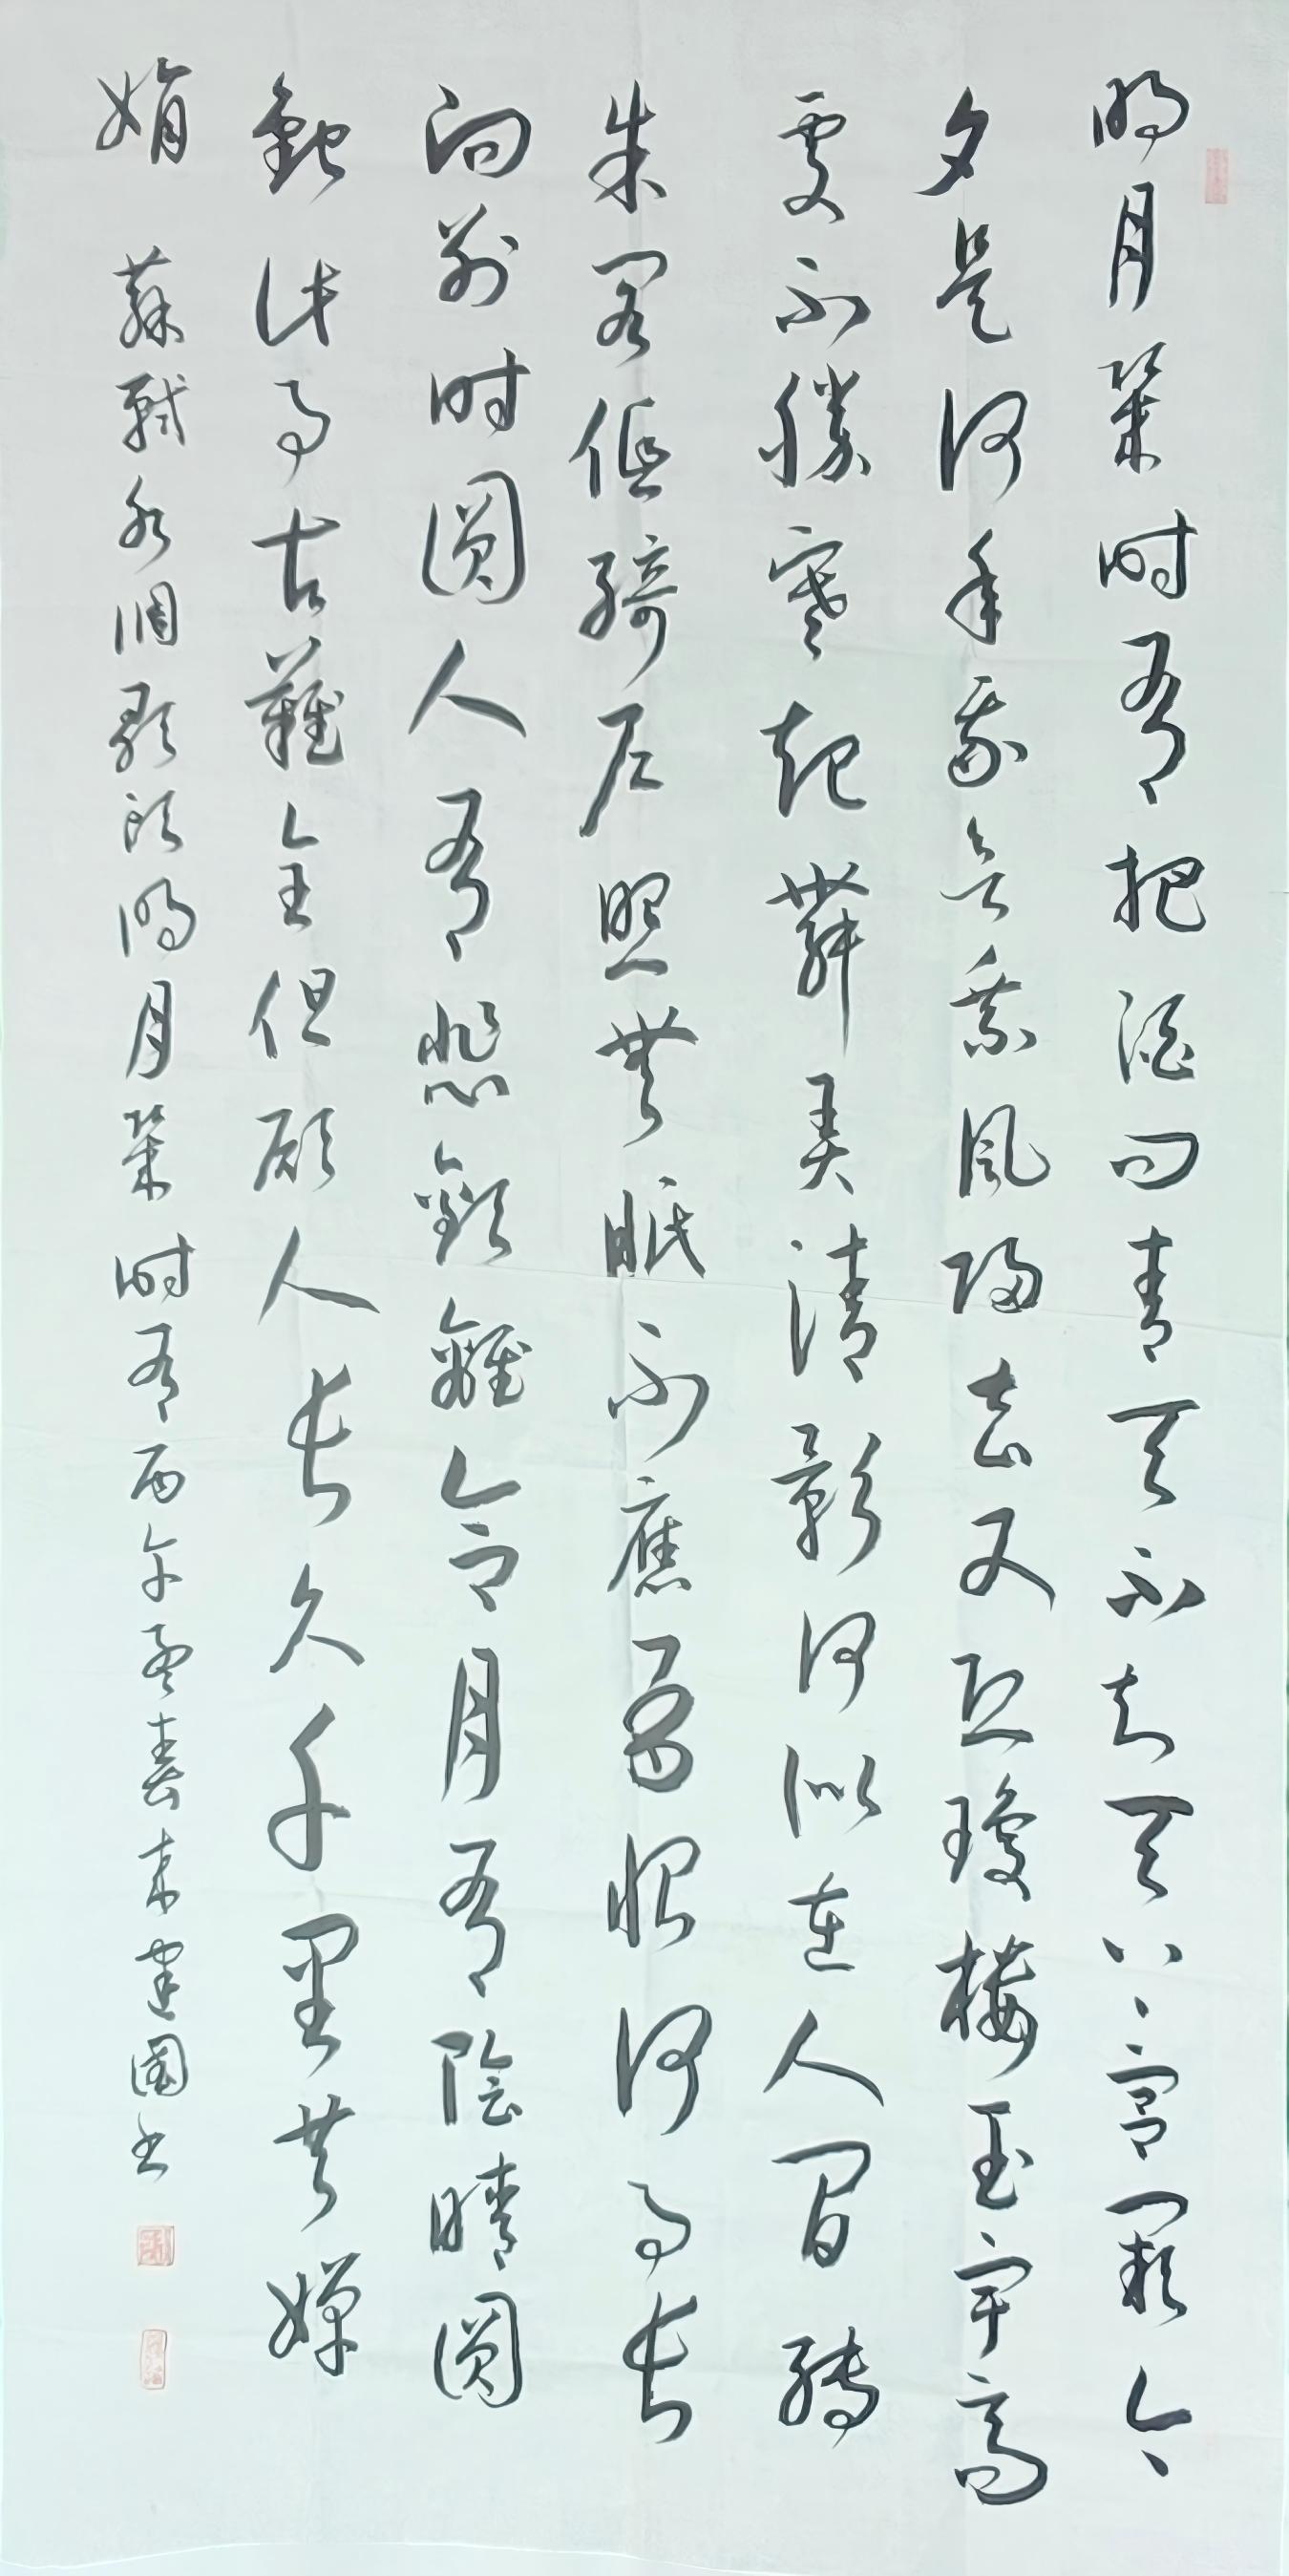 明月幾时有把酒问青天不知天上宫阙今
夕是何年我欲乘风归去又恐瓊楼玉宇高
處不勝寒起舞弄清影何似在人间转
朱阁低绮户照無眠不應有恨何事长
向别时圆人有悲歡離合月有陰晴圆
缺此事古難全但願人长久千里共嬋
娟 蘇軾水调歌頭明月幾时有丙午孟春建國书